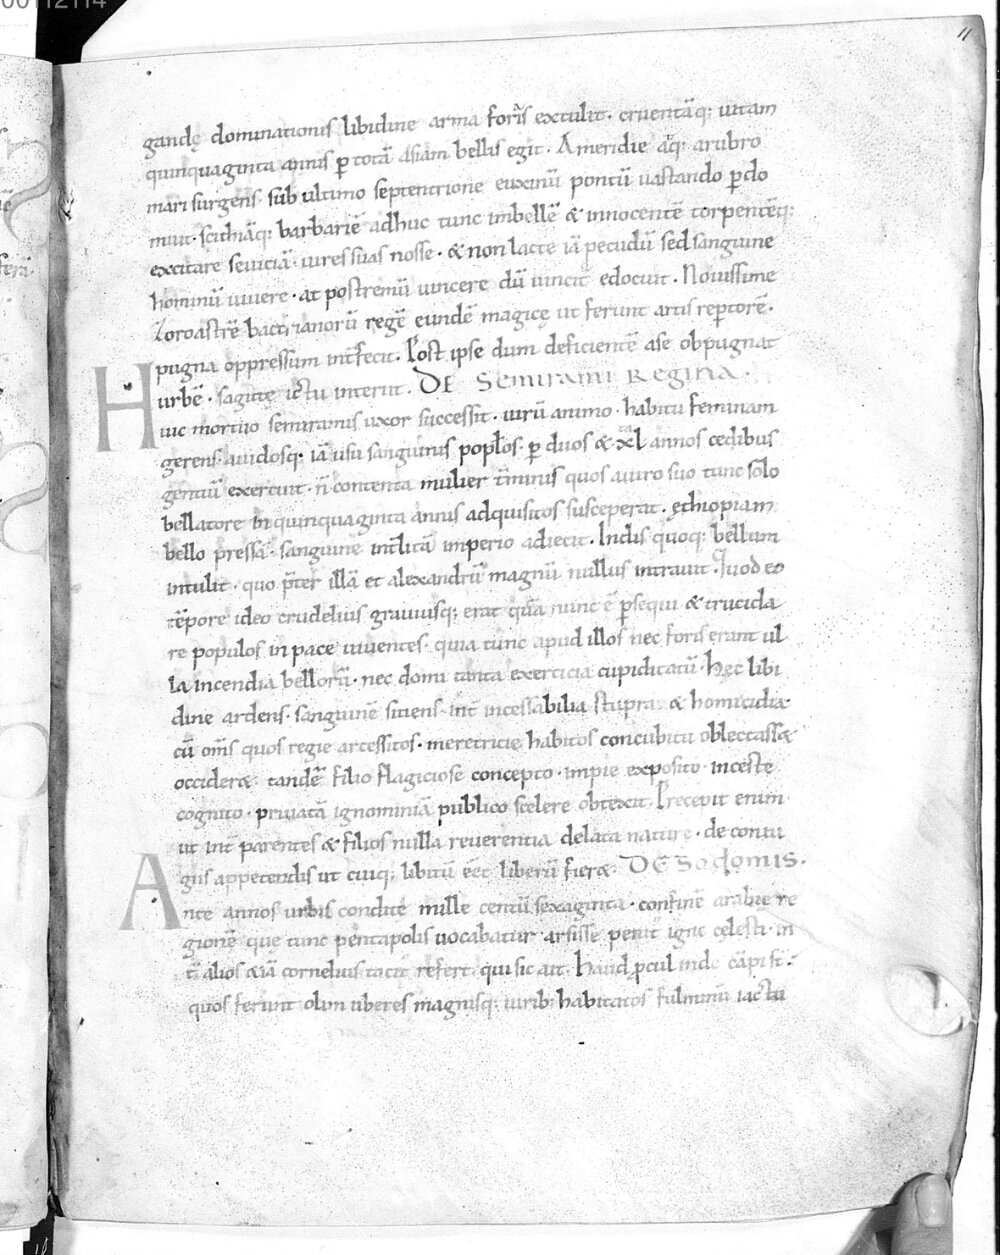 00112114
11
gandę dominationis libidine arma foris̄ extulit. cruentāq; uitam
quinquaginta annis p̄ totā asiam bellis egit. A meridie āq; a rubro
mari surgens. sub ultimo septentrione euxinū pontū uastando p̄do
muit. scithiāq; barbariē adhuc tunc inbellē & innocentē torpentēq;
excitare seuiciā. uires suas nosse. & non lacte iā pecudū sed sanguine
hominū uiuere. at postremū uincere dū uincit edocuit. Nouissime
Zoroastrē bactrianorū regē eundē magicę ut ferunt artis rep̄torē.
pugna oppressum int̄fecit. Post ipse dum deficientē a se obpugnat
urbē. sagitte ictu interiit. DE Semirami Regina.
Huic mortuo semiramis uxor successit. uirū animo. habitu feminam
gerens. auidosq; iā usu sanguinis popl̄os. p̄ duos & xl annos cedibus
gentiū exercuit. n̄ contenta mulier t̄minis quos a uiro suo tunc solo
bellatore in quinquaginta annis adquisitos susceperat. ęthiopiam
bello pressā. sanguine int̄litā imperio adiecit. Indis quoq; bellum
intulit. quo p̄ter illā et alexandrū magnū nullus intrauit. Quod eo
tēpore ideo crudelius grauiusq; erat quā nunc ē p̄sequi & trucida
re populos in pace uiuentes. quia tunc apud illos nec foris erant ul
la incendia bellorū. nec domi tanta exercicia cupiditatū. Hęc libi
dine ardens. sanguinē sitiens. int̄ incessabilia stupra & homicidia.
cū om̄s quos regie arcessitos. meretricie habitos concubitu oblectass&
occider&. tandē filio flagiciose concepto. impie exposito. inceste
cognito. priuatā ignominiā publico scelere obtexit. Precepit enim
ut int̄ parentes & filios nulla reuerentia delata nature. de coniu
giis appetendis ut cuiq; libitū eēt liberū fier&. DE SoDomis.
Ante annos urbis conditę mille centū sexaginta. confinē arabię re
gionē que tunc pentapolis uocabatur arsisse penit' igne cęlesti. in
t̄ alios &iā cornelius tacit' refert. qui sic ait. Haud p̄cul inde cāpi st̄.
quos ferunt olim uberes magnisq; urib; habitatos fulminū iactu